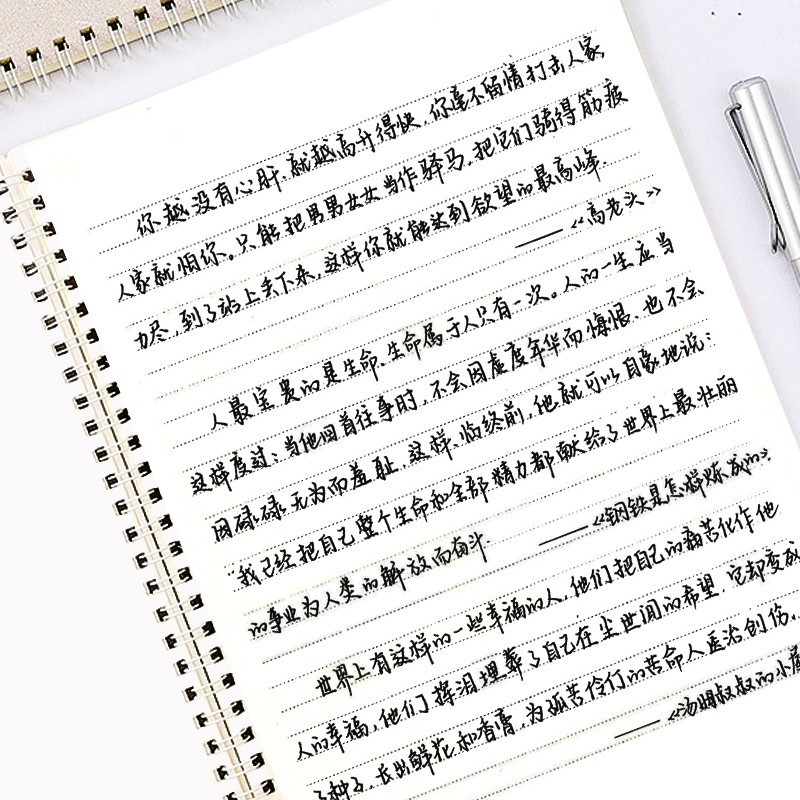 你越没有心肝,就越高升得快,你毫不留情打击人家,
人家就怕你。只能把男男女女当作驿马,把它们骑得筋疲
力尽,到了站上丢下来,这样你就能达到欲望的最高峰.
——《高老头》
人最宝贵的是生命、生命属于人只有一次。人的一生应当
这样度过:当他回首往事时,不会因虚度年华而悔恨、也不会
因碌碌无为而羞耻,这样,临终前,他就可以自豪地说:
“我已经把自己整个生命和全部精力都献给了世界上最壮丽
的事业为人类的解放而奋斗.
——《钢铁是怎样炼成的》
世界上有这样的一些幸福的人,他们把自己的痛苦化作他
人的幸福,他们挥泪埋葬了自己在尘世间的希望,它却变成
了种子,长出鲜花和香膏,为孤苦伶仃的苦命人医治创伤.
——《汤姆叔叔的小屋